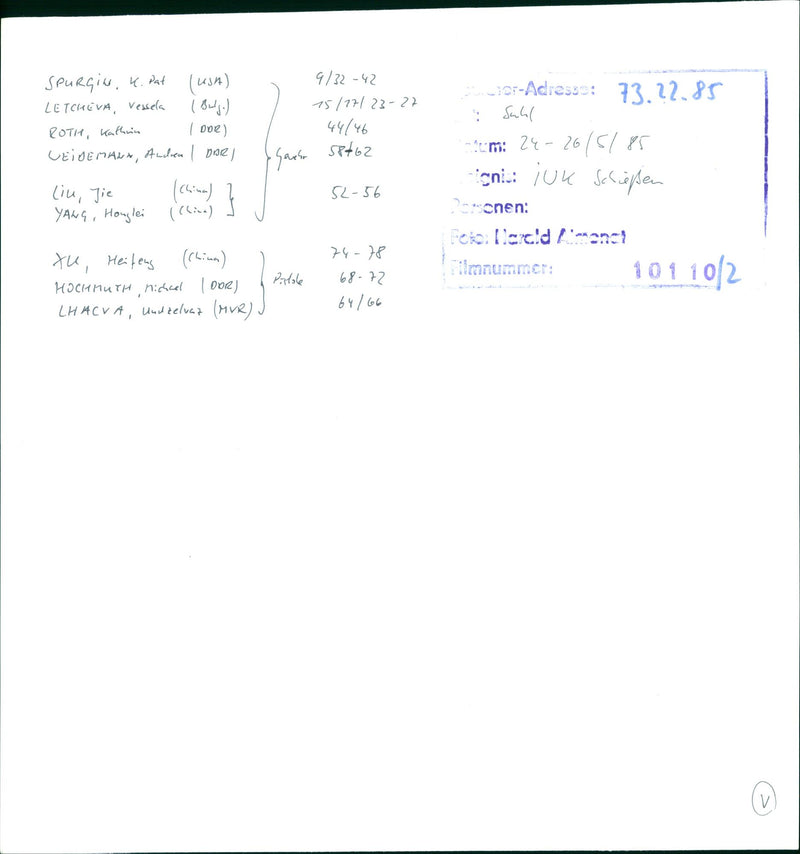 SPURGIN, K. Pat (USA) 9/32-42
LETCHEVA, Vessela (Bulg.) 15/17/23-27
ROTH, Kathrin (DDR) 44/46
WEIDEMANN, Andrea (DDR) Gewehr 58+62
LIU, Jie (China) 52-56
YANG, Honglei (China)
XU, Heifeng (China) 74-78
HOCHMUTH, Michael (DDR) Pistole 68-72
LHACVA, Undzelvaz (MVR) 64/66
-Adresse: 73.22.85
: Suhl
tum: 24-26/5/85
ignis: IUK Schießen
Personen:
Foto: Harald Almonat
Filmnummer: 10110/2
V